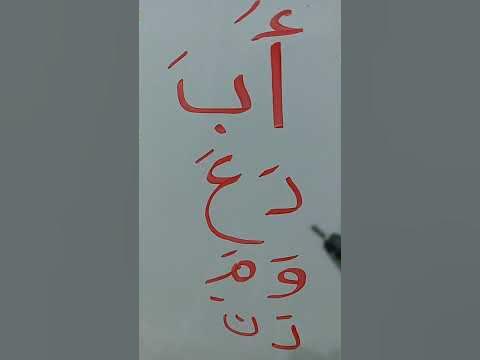 أَ بَ
دَ عَ
وَ مَ
دَ